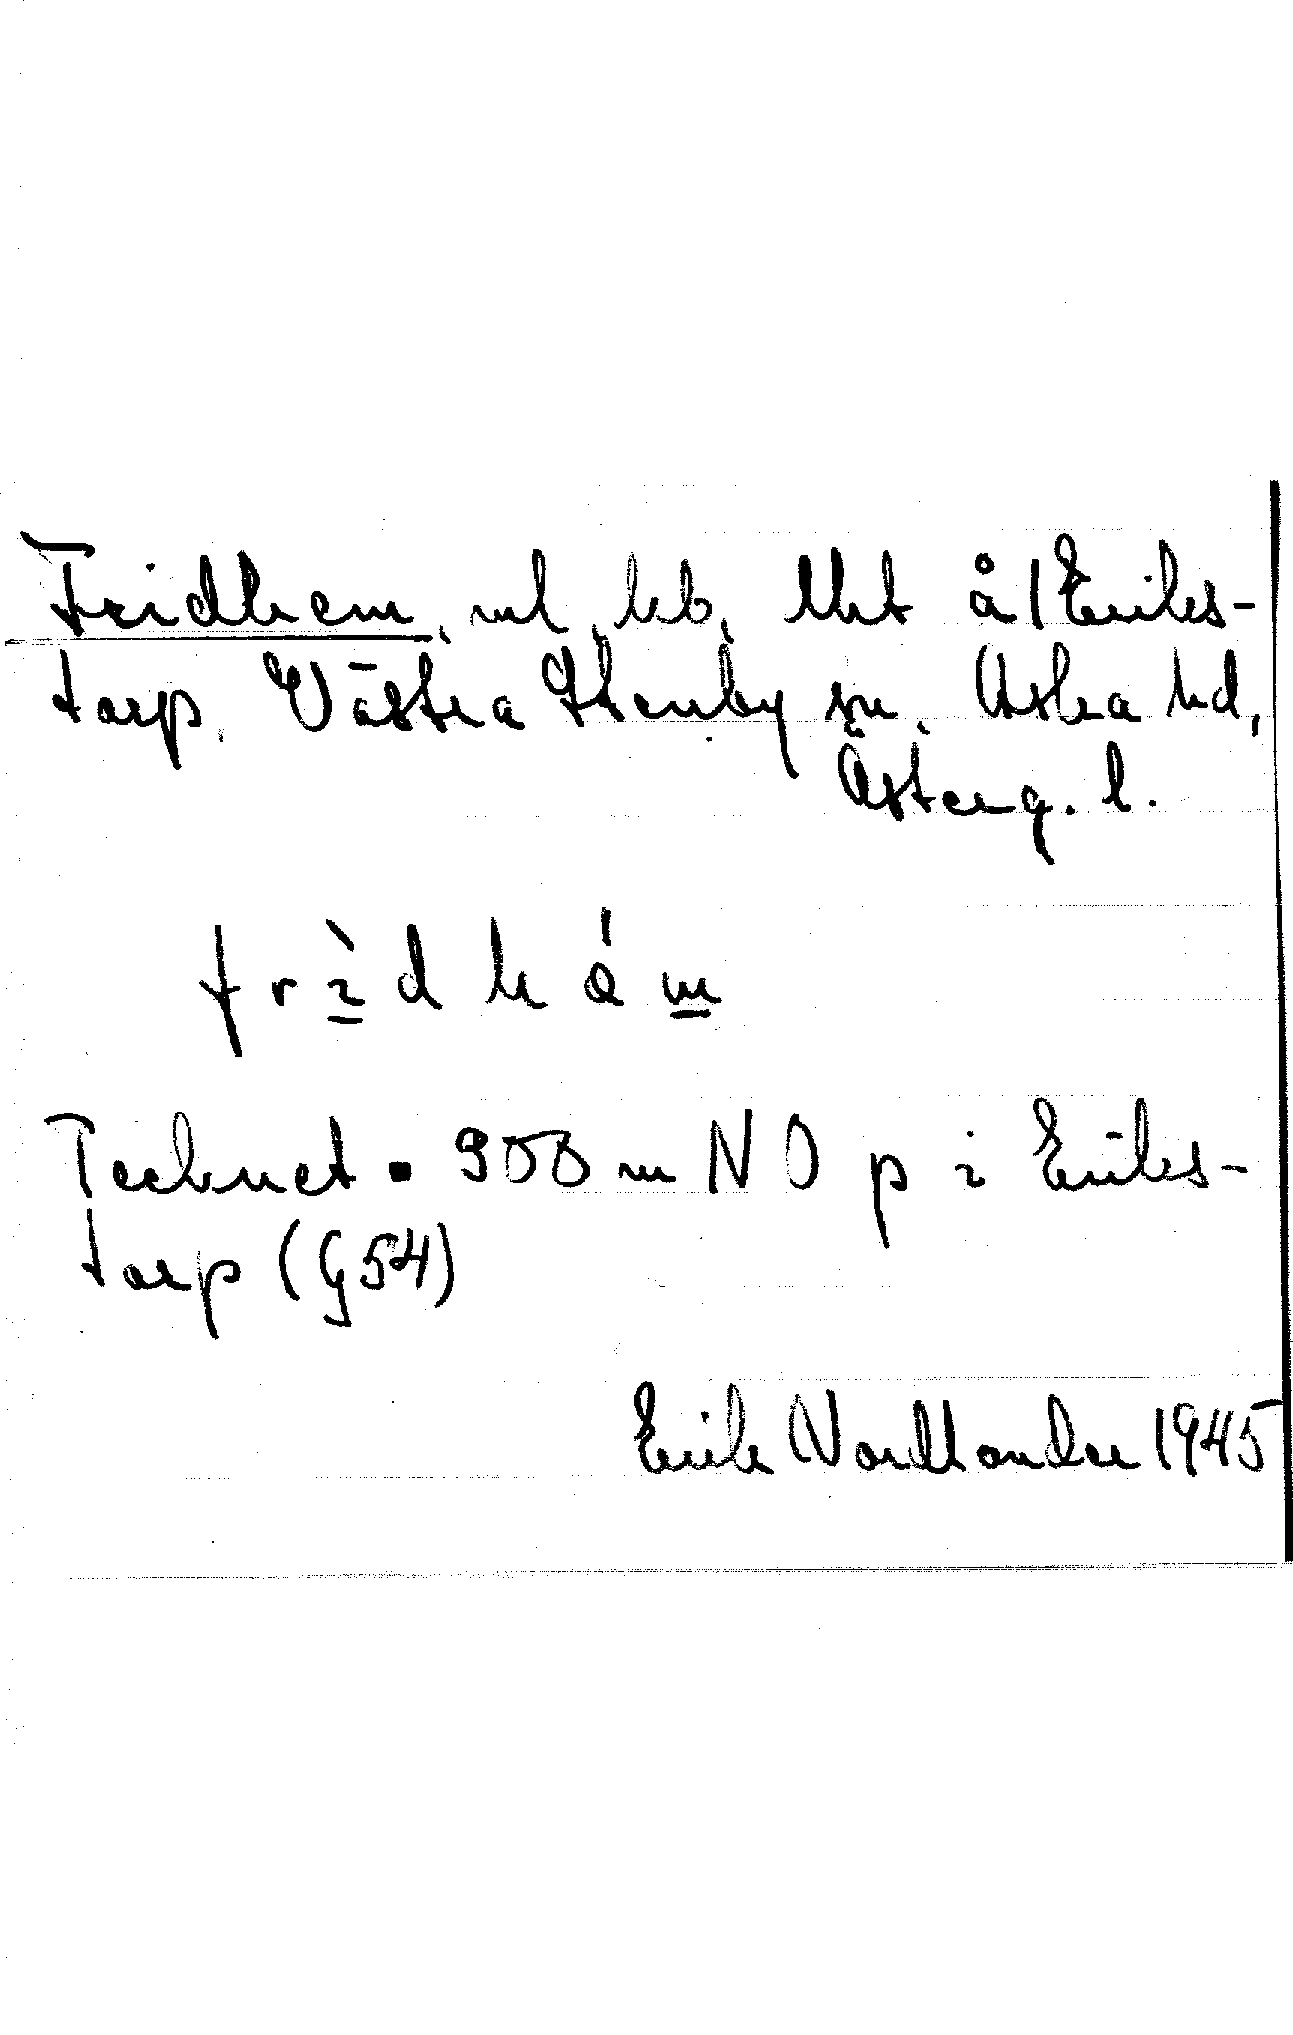 Fridhem, ml, heb, lht å 1 Eriks-
torp, Västra Stenby sn, Aska hd,
Österg. l.
frìdhám
Tecknet ▪ 900 m NO p i Eriks-
torp (G54)
Erik Nordlander 1945